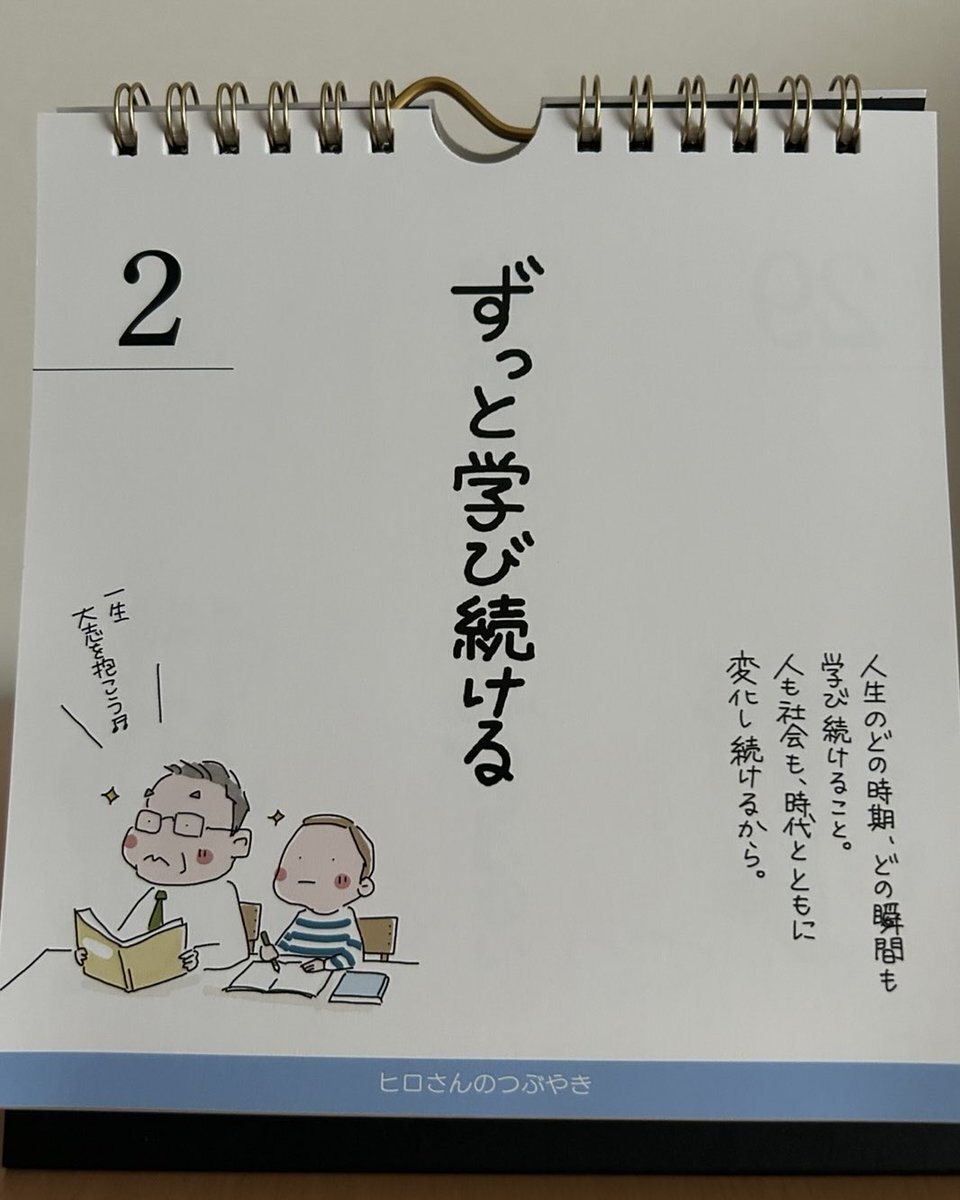 2
ずっと学び続ける
人生のどの時期、どの瞬間も
学び続けること。
人も社会も、時代とともに
変化し続けるから。
一生
大志を抱こう♬
ヒロさんのつぶやき
29